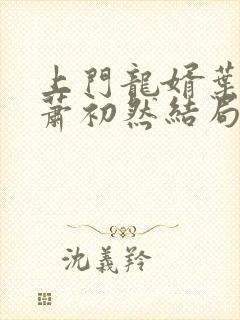 上門龍婿葉
蕭初然結局
沈義羚